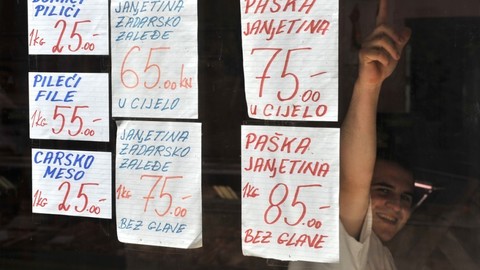 DOMAĆI
PILIĆI
1kg 25.00
PILEĆI
FILE
1kg 55.00
CARSKO
MESO
1kg 25.00
JANJETINA
ZADARSKO
ZALEĐE
65.00 kn
U CIJELO
JANJETINA
ZADARSKO
ZALEĐE
1kg 75.00
BEZ GLAVE
PAŠKA
JANJETINA
75.00
U CIJELO
PAŠKA
JANJETINA
1kg 85.00
BEZ GLAVE